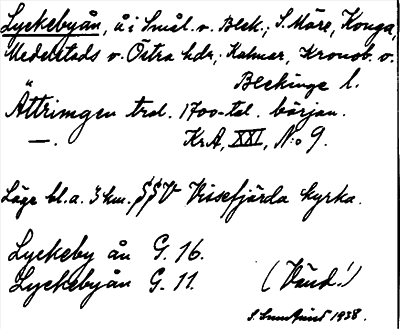 Lyckebyån, å i Smål. o. Blek.; S. Möre, Konga,
Medelstads o. Östra hdr; Kalmar, Kronob. o.
Blekinge l.
"Ättrimgen trol. 1700-tal. början.
—. Kr.A, XXI, N:o 9.
Läge bl.a. 3 km. SSV Vissefjärda kyrka.
Lyckeby ån G. 16.
Lyckebyån G. 11. (Vänd!)
1938.